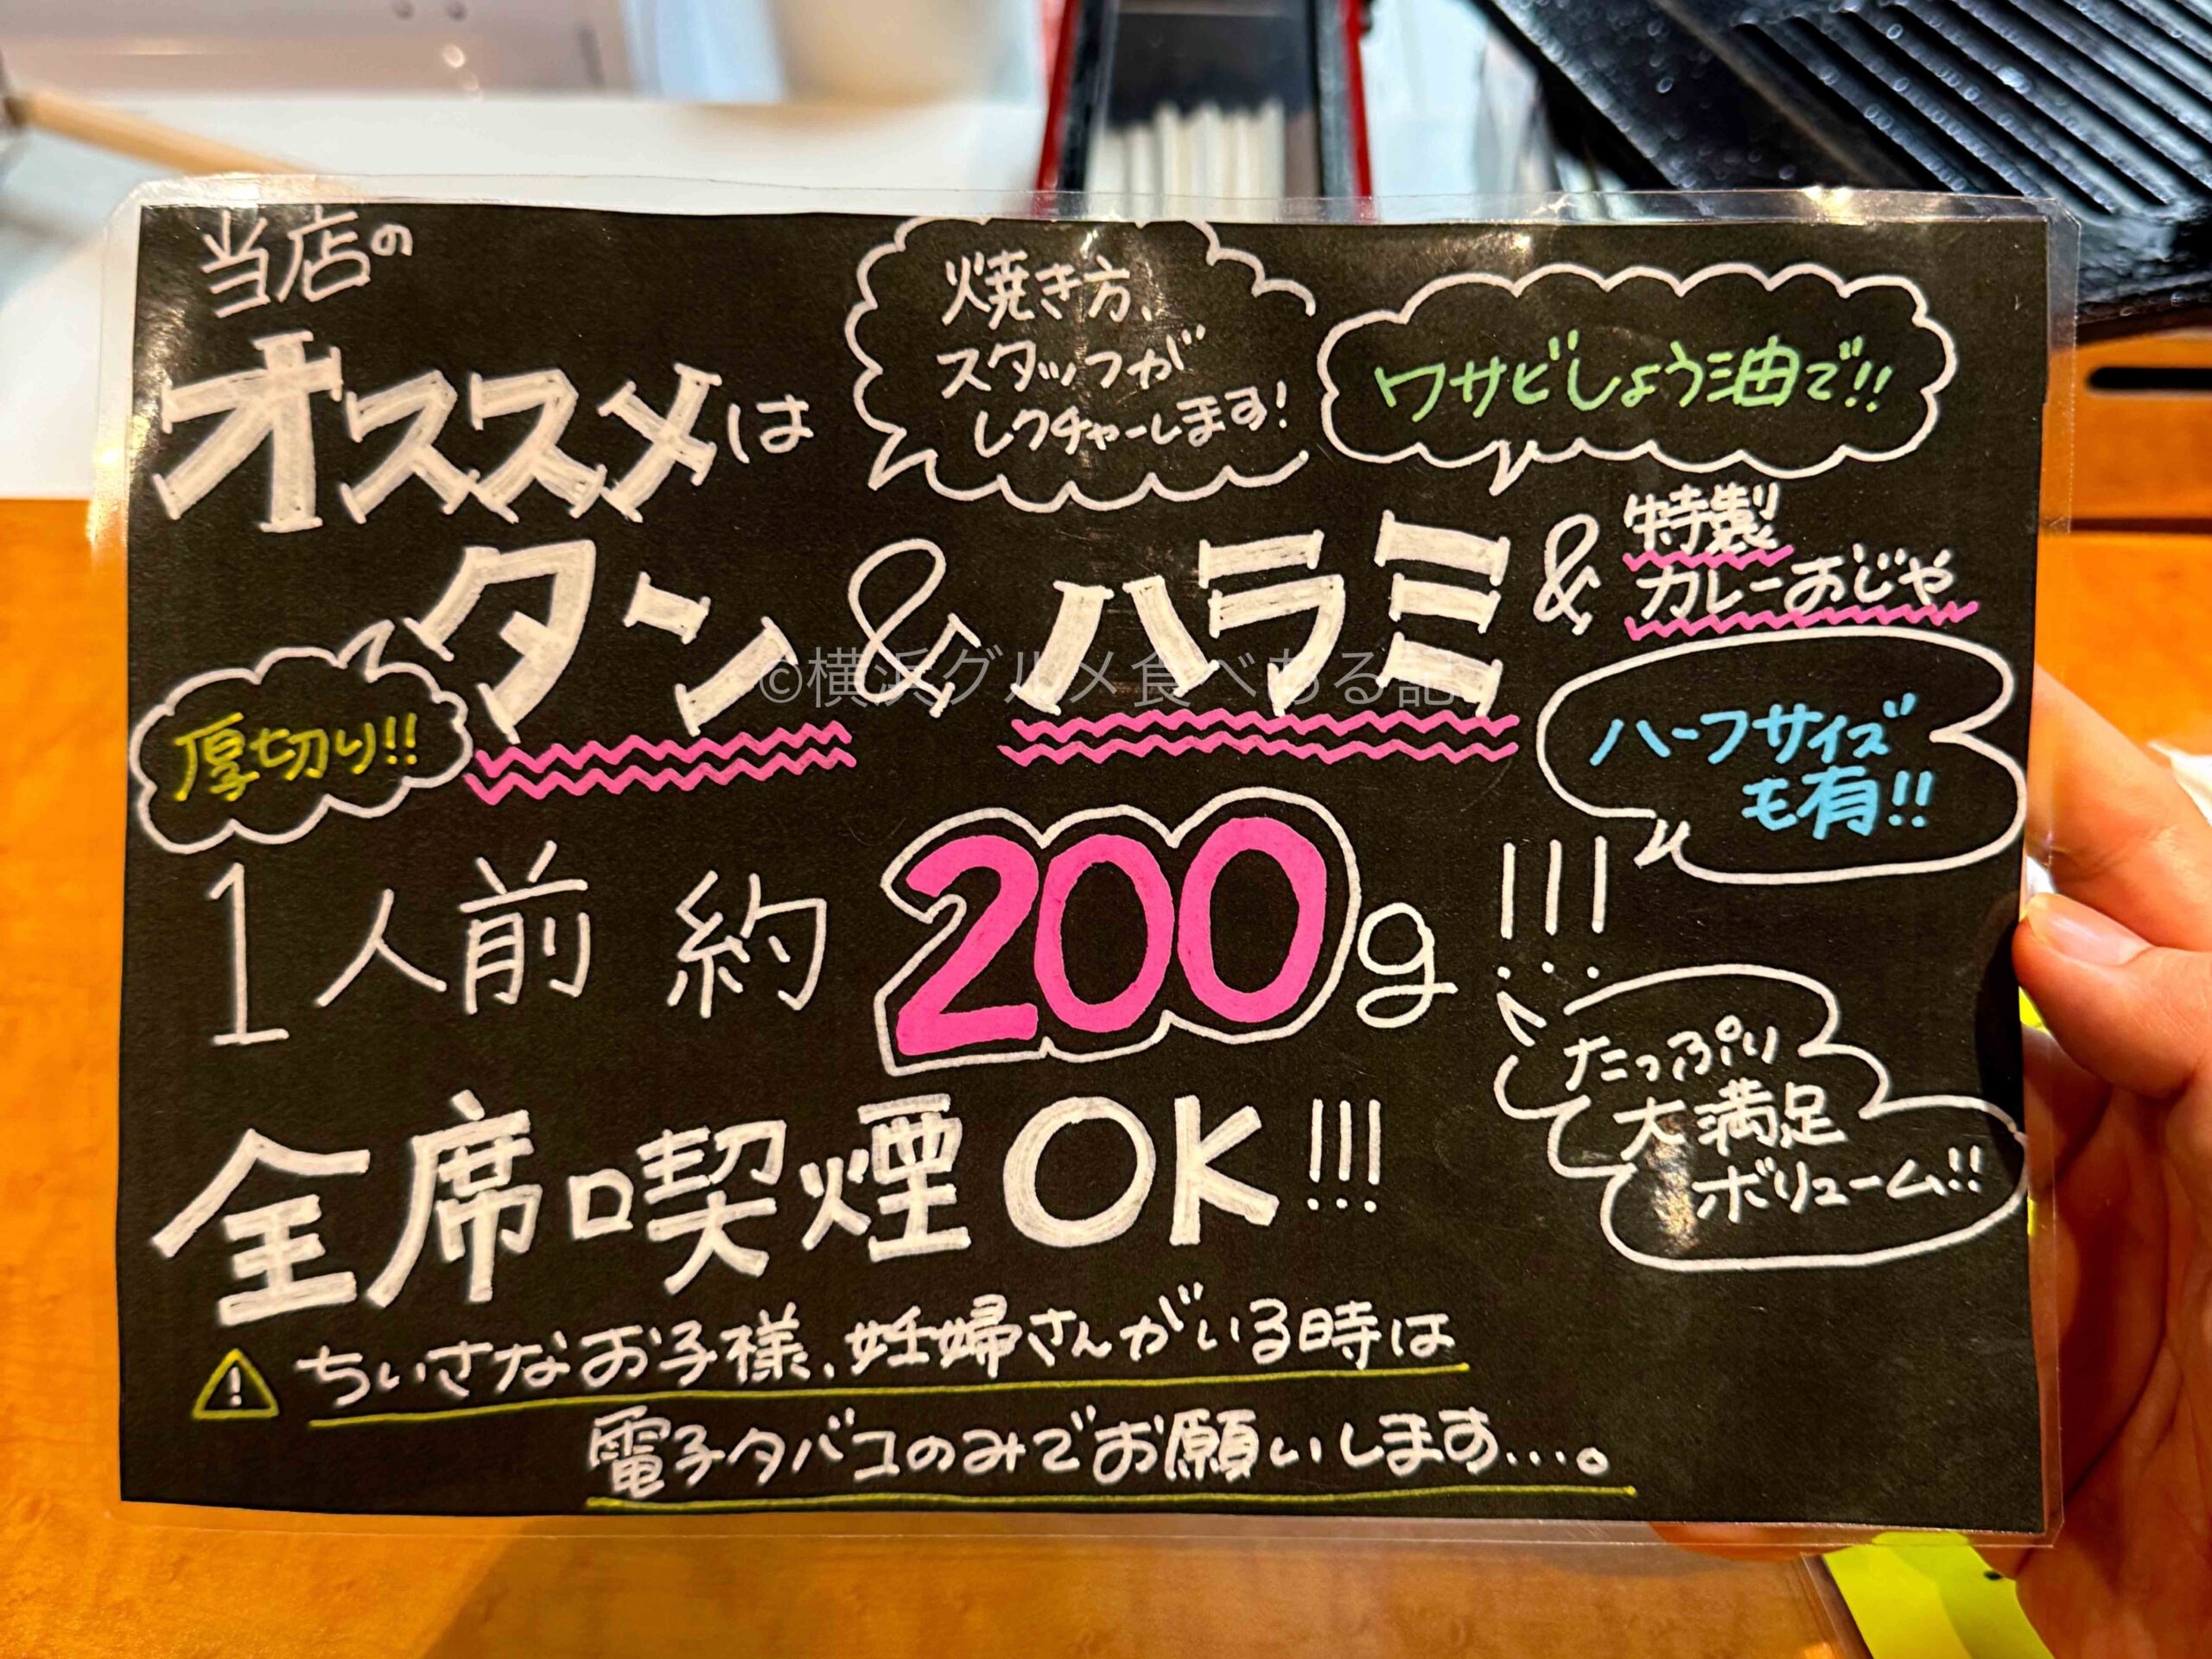 当店の
オススメは
焼き方、
スタッフが
レクチャーします!
ワサビしょう油で!!
タン&ハラミ&
特製
カレーおじや
厚切り!!
ハーフサイズ
も有!!
1人前 約200g!!!
たっぷり
大満足
ボリューム!!
全席喫煙OK!!!
ちいさなお子様、妊婦さんがいる時は
電子タバコのみでお願いします…。
©横浜グルメ食べある記